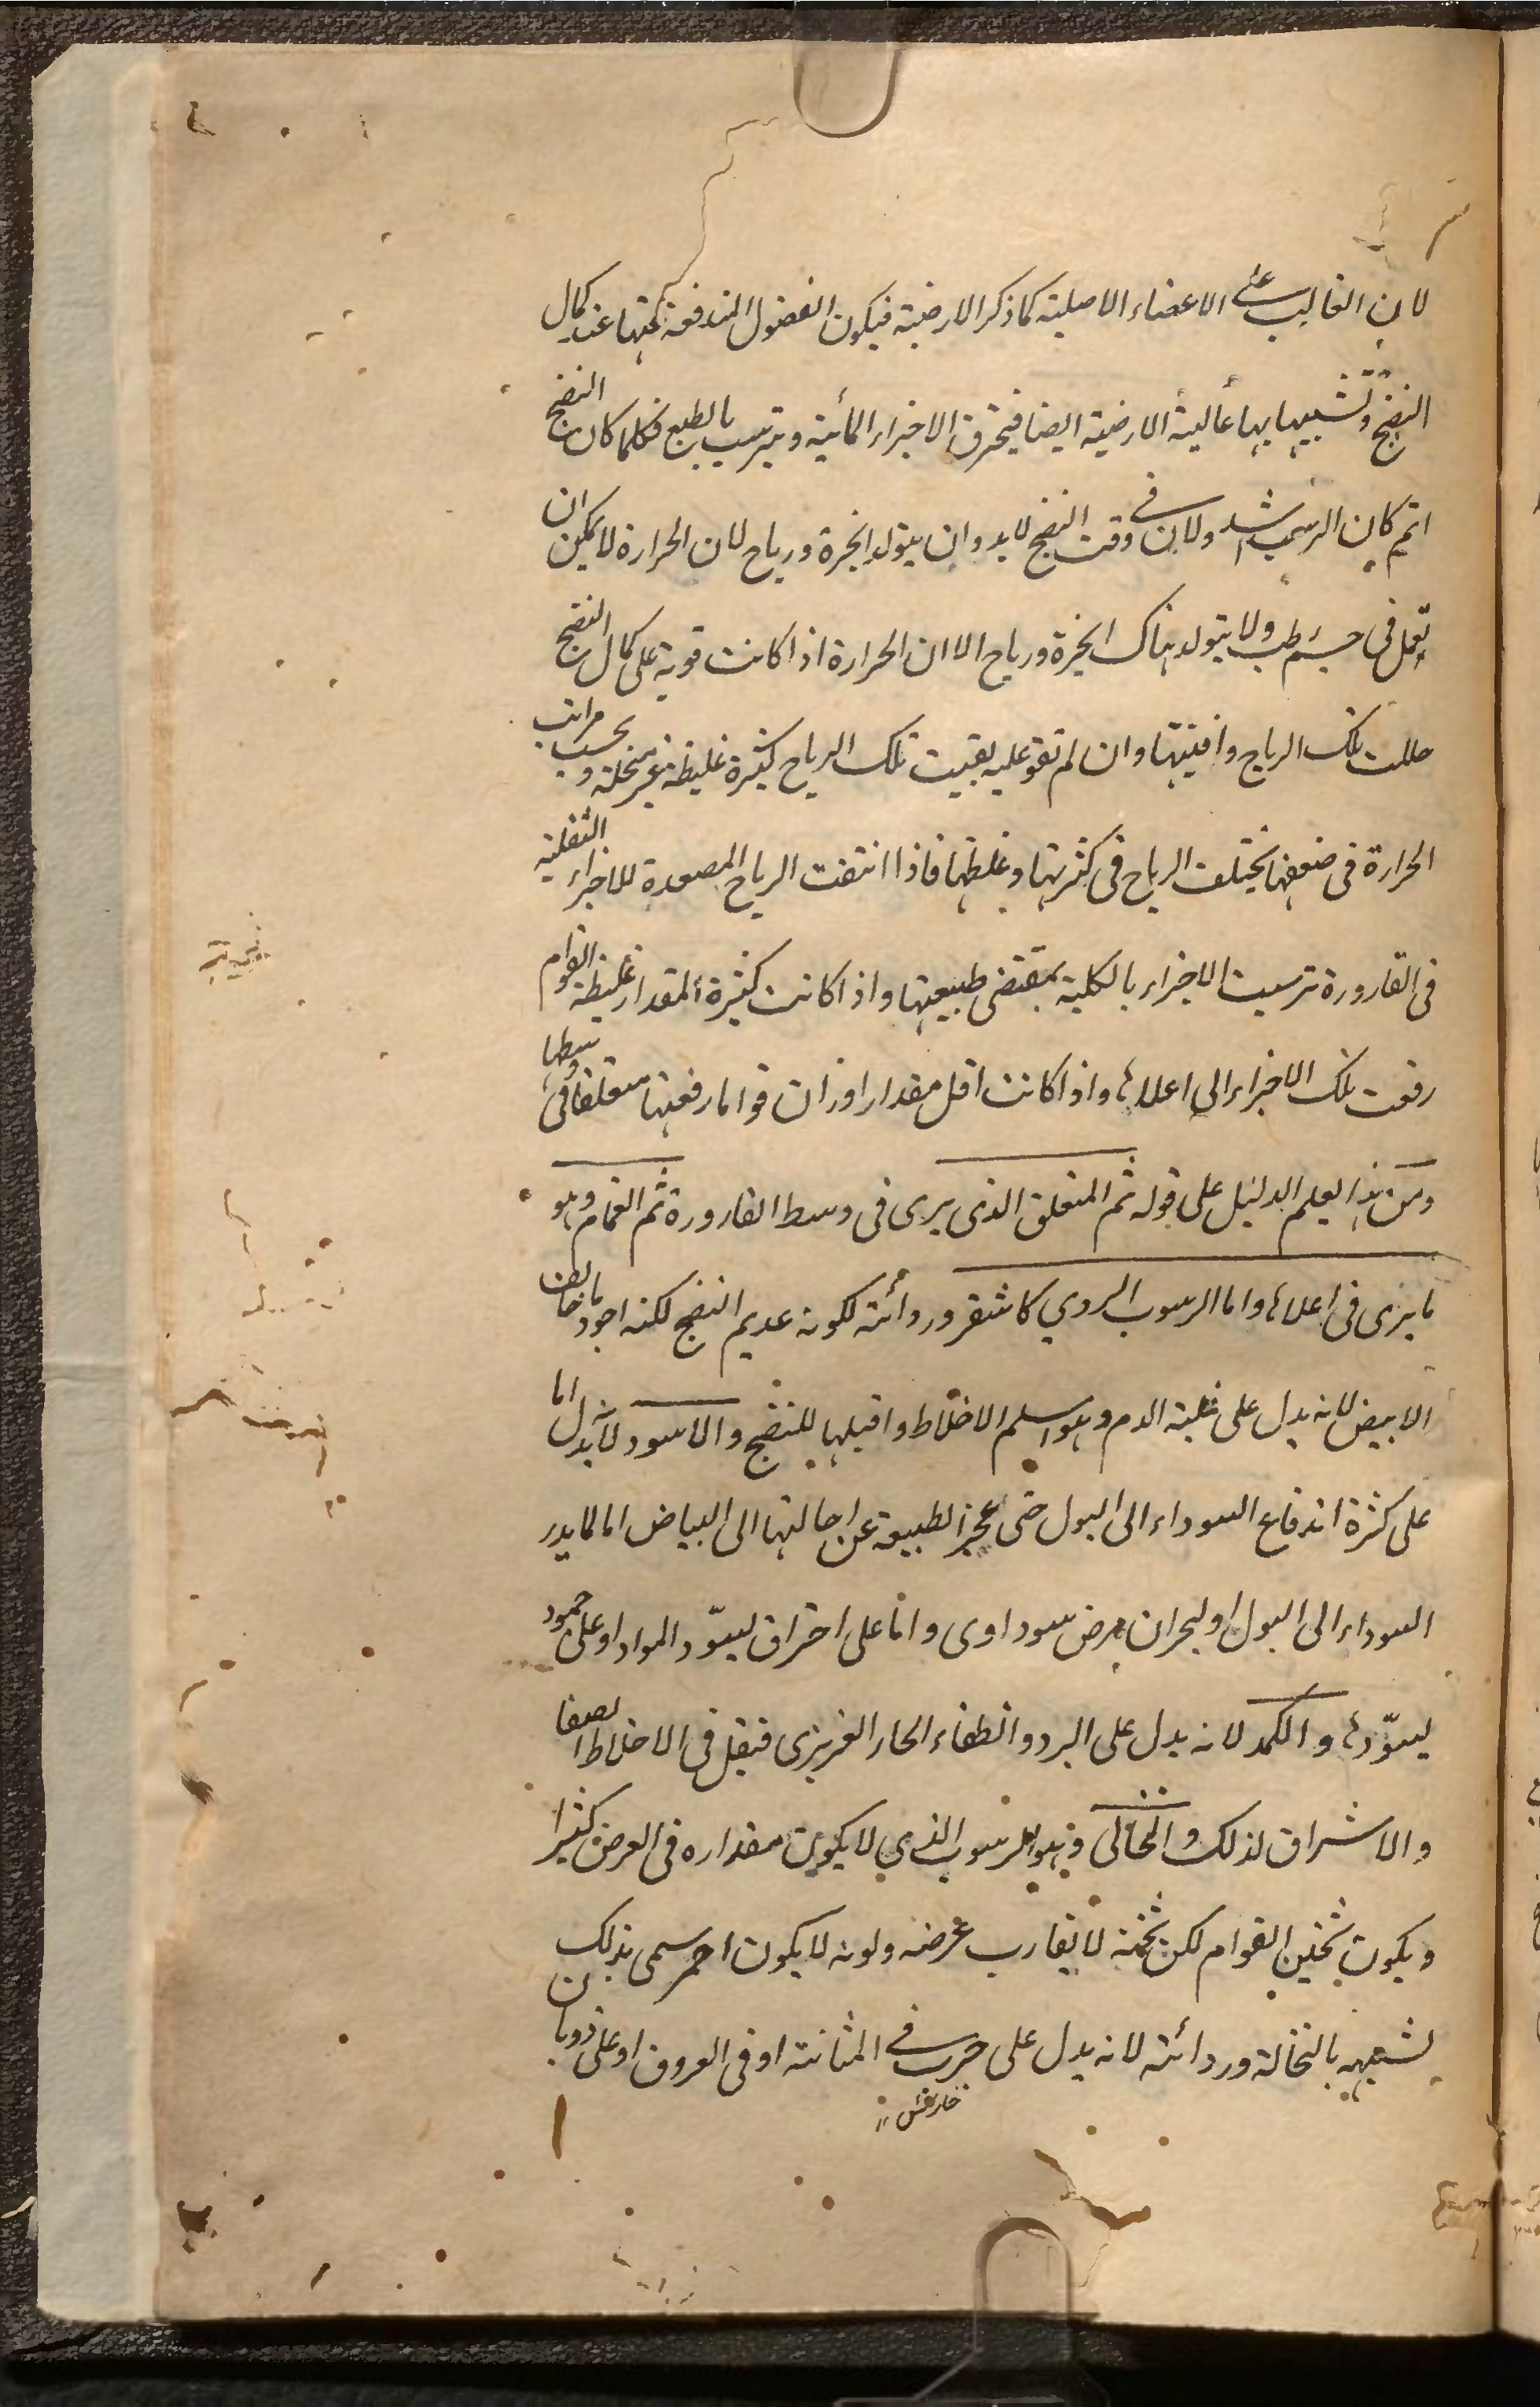 لان الغالب على الاعضاء الاصلية كما ذكر الارضية فيكون الفضول المندفعة عنها عند كمال
النضج وتشبيهها بها غالبة الارضية ايضا فيخترق الاجزاء المائية ويترسب بالطبع فكلما كان النضج
اتم كان الرسوب اشد ولان في وقت النضج لابد وان يتولد ابخرة ورياح لان الحرارة لا يمكن ان
تعمل في جسم رطب ولا يتولد هناك ابخرة ورياح الا ان الحرارة اذا كانت قوية على كمال النضج
حللت تلك الرياح وافنيتها وان لم تقو عليه بقيت تلك الرياح كثيرة غليظة غير منحلة وبحسب مراتب
الحرارة في ضعفها يختلف الرياح في كثرتها وغلظها فاذا انتفت الرياح المصعدة للاجزاء الثفلية
في القارورة ترسبت الاجزاء بالكلية بمقتضى طبيعتها واذا كانت كثيرة المقدار غليظة القوام
رفعت تلك الاجزاء الى اعلاها واذا كانت اقل مقدارا وارق قواما رفعتها متعلقا في وسطها
ومن هذا يعلم الدليل على قوله ثم المتعلق الذي يرى في وسط القارورة ثم الغمام وهو
ما يرى في اعلاها واما الرسوب الردي كاشقر وردائته لكونه عديم النضج لكنه اجود ما خالف
الابيض لانه يدل على غلبة الدم وهو اسلم الاخلاط واقبلها للنضج والاسود لانه يدل اما
على كثرة اندفاع السوداء الى البول حتى عجز الطبيعة عن احالتها الى البياض اما لما يدر
السوداء الى البول او لبحران مرض سوداوى واما على احتراق يسوّد المواد او على جمود
يسوّدها والكمد لانه يدل على البرد وانطفاء الحار الغريزى فيقل في الاخلاط الصفا
والاشراق لذلك والنخالى وهو الرسوب الذي لا يكون مقداره في العرض كثيرا
ويكون ثخين القوام لكن ثخنه لا يقارب عرضه ولونه لا يكون احمر سمى بذلك
لشبهه بالنخالة وردائته لانه يدل على جرب في المثانة او في العروق او على ذوبان
خارش